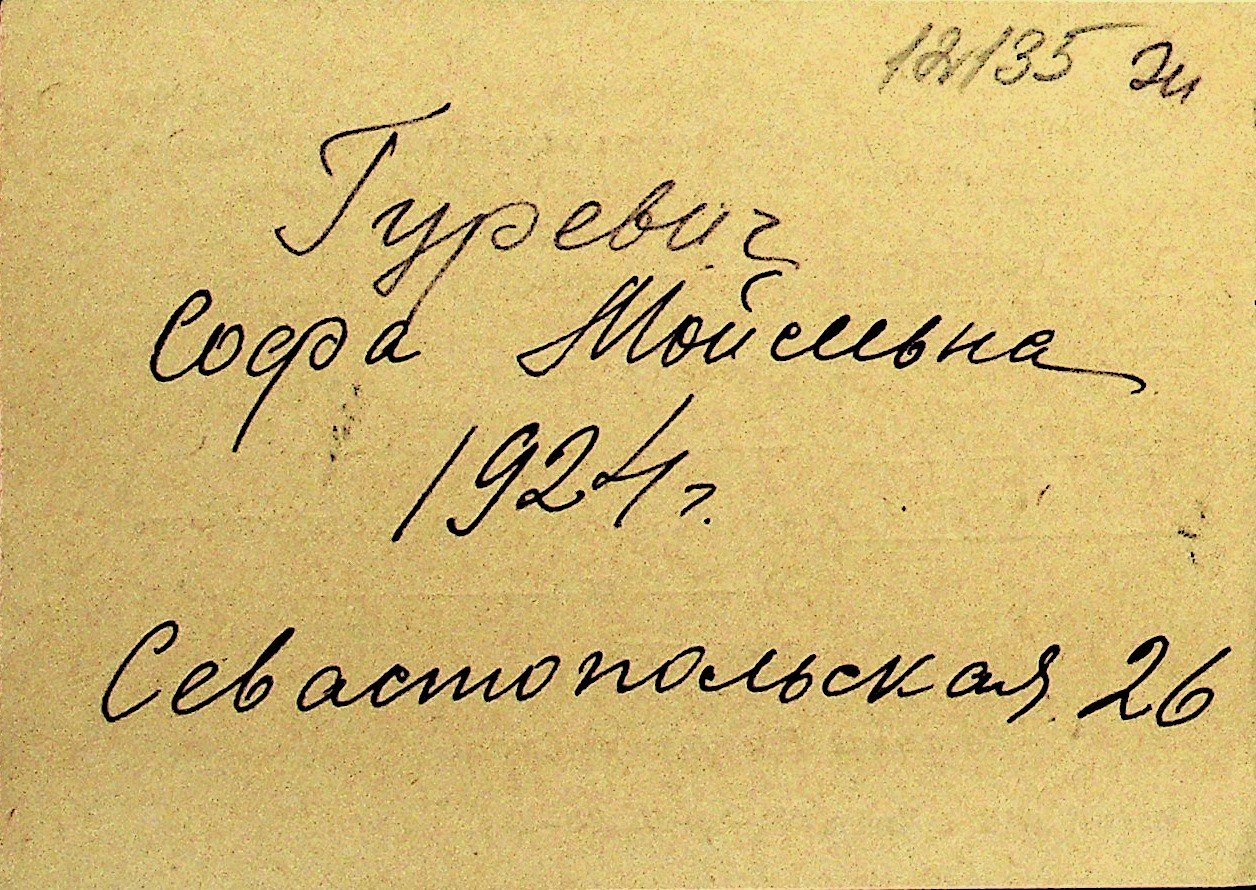 12135 эи
Гуревич
Софа Мойсмьна
1924 г.
Севастопольская 26